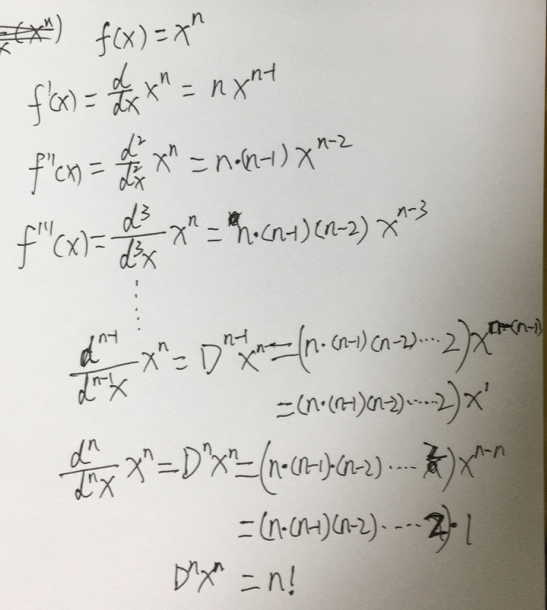 f(x) = xⁿ
f'(x) = d/dx xⁿ = n xⁿ⁻¹
f''(x) = d²/d²x xⁿ = n·(n-1) xⁿ⁻²
f'''(x) = d³/d³x xⁿ = n·(n-1)(n-2) xⁿ⁻³
⋮
dⁿ⁻¹/dⁿ⁻¹x xⁿ = Dⁿ⁻¹xⁿ = (n·(n-1)(n-2)····2)x^(n-(n-1))
= (n·(n-1)(n-2)·····2)x¹
dⁿ/dⁿx xⁿ = Dⁿxⁿ = (n·(n-1)·(n-2)····2)xⁿ⁻ⁿ
= (n·(n-1)(n-2)·····2)·1
Dⁿxⁿ = n!